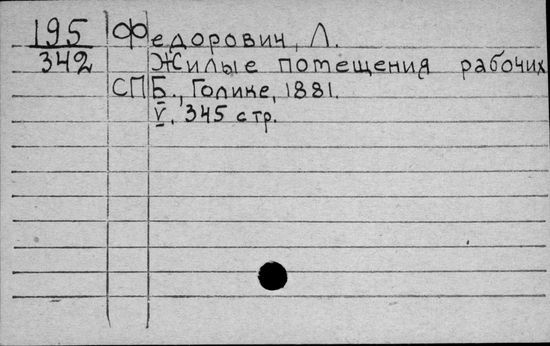 195 Федорович, Л.
342 Жилые помещения рабочих
СПБ., Голике, 1881.
V, 345 стр.